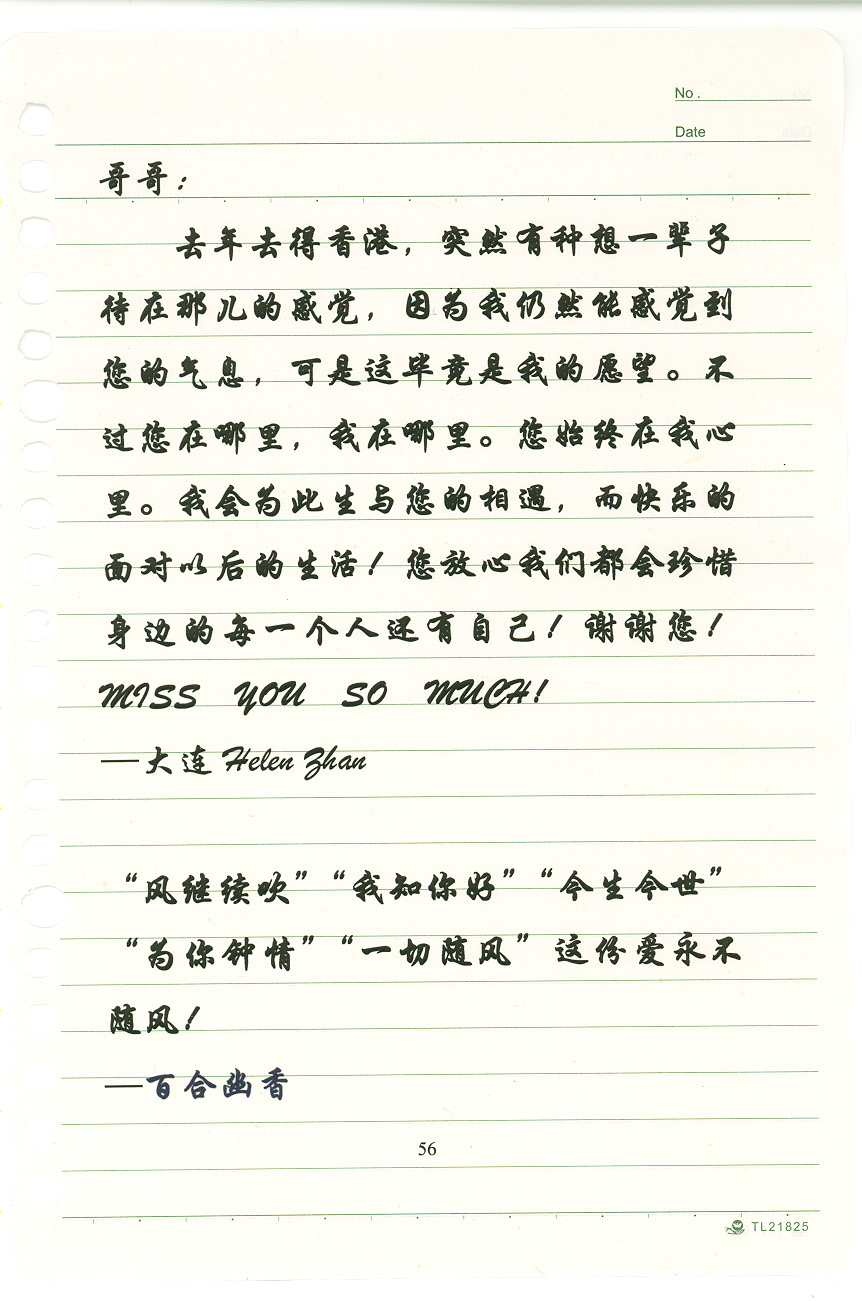 No.
Date
哥哥：
去年去得香港，突然有种想一辈子
待在那儿的感觉，因为我仍然能感觉到
您的气息，可是这毕竟是我的愿望。不
过您在哪里，我在哪里。您始终在我心
里。我会为此生与您的相遇，而快乐的
面对以后的生活！您放心我们都会珍惜
身边的每一个人还有自己！谢谢您！
MISS YOU SO MUCH!
—大连 Helen Zhan
“风继续吹”“我知你好”“今生今世”
“为你钟情”“一切随风”这份爱永不
随风！
—百合幽香
56
TL21825